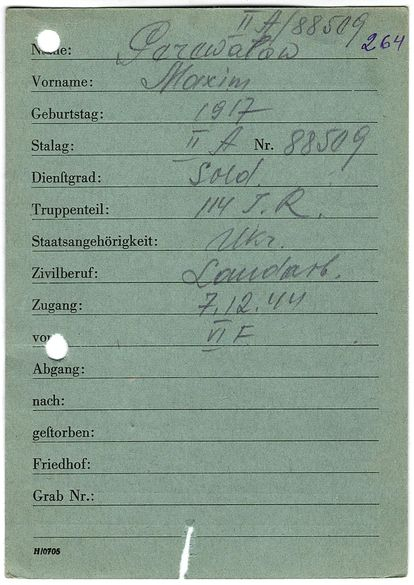 II A/88509
264
Name: Perewalow
Vorname: Maxim
Geburtstag: 1917
Stalag: II A Nr. 88509
Dienſtgrad: Sold.
Truppenteil: 114 I. R.
Staatsangehörigkeit: Ukr.
Zivilberuf: Landarb.
Zugang: 7.12.44
von VI F
Abgang:
nach:
geſtorben:
Friedhof:
Grab Nr.:
H/0705